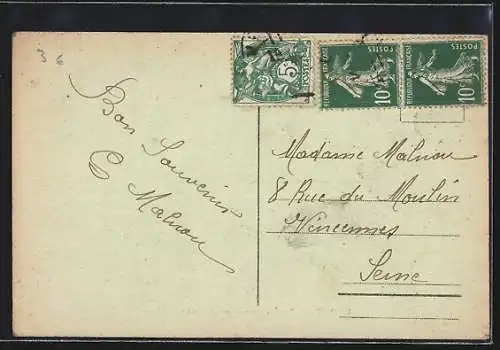 36
5
POSTES
10c
REPUBLIQUE FRANÇAISE
POSTES
10c
REPUBLIQUE FRANÇAISE
Bon Souvenir
E Malnou
Madame Malnou
8 Rue du Moulin
Vincennes
Seine